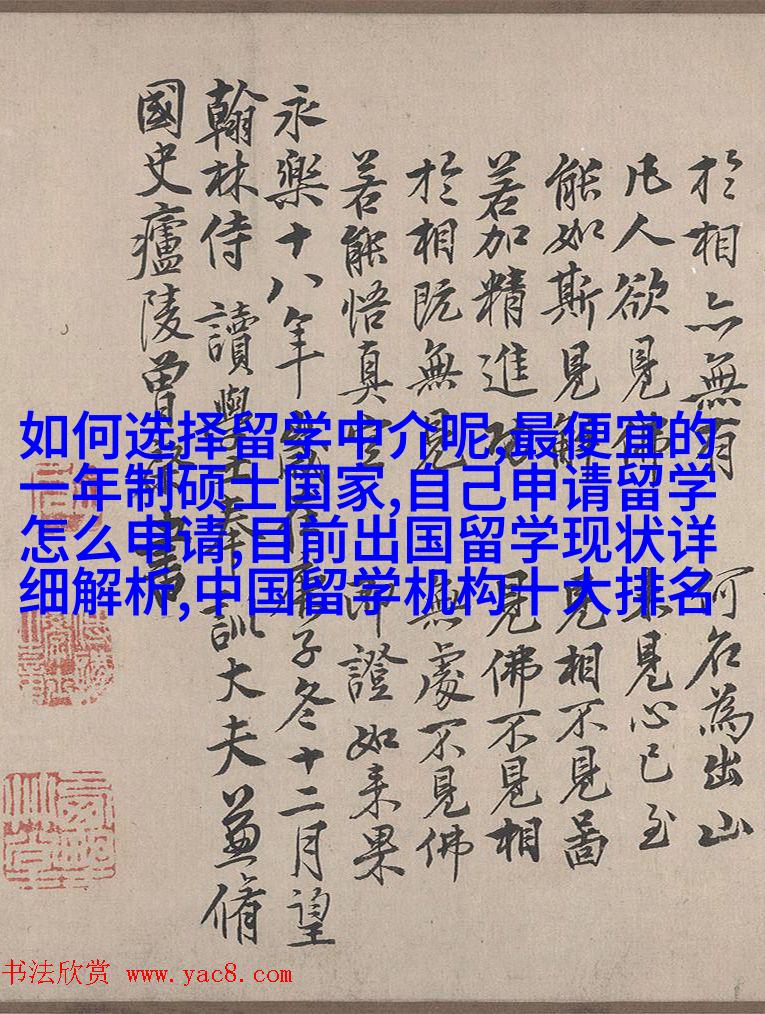 如何选择留学中介呢,最便宜的
一年制硕士国家,自己申请留学
怎么申请,目前出国留学现状详
细解析,中国留学机构十大排名
於相亦無有 何名為出山
凡人欲見佛 未見心已至
能如斯見解 見相不見啚
若加精進 見佛不見相
於相既無見 無處不見佛
若能悟真空 證如来果
永樂十八年歲在庚子冬十二月望
翰林侍讀學士奉訓大夫兼脩
國史廬陵曾棨書
书法欣赏 www.yac8.com